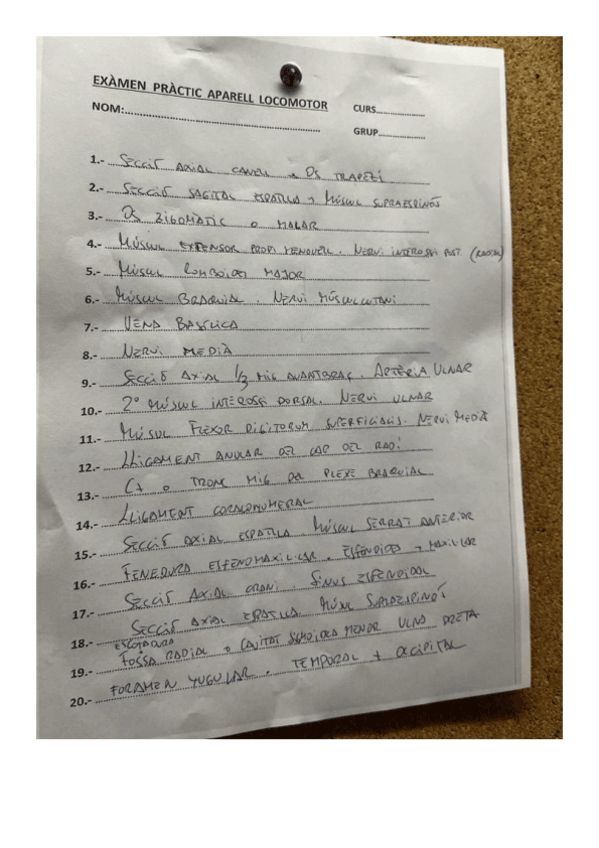 EXÀMEN PRÀCTIC APARELL LOCOMOTOR
CURS
NOM:
GRUP
1.- SECCIÓ AXIAL CANELL → OS TRAPEZI
2.- SECCIÓ SAGITAL ESPATLLA → MÚSCUL SUPRAESPINÓS
3.- OS ZIGOMATIC O MALAR
4.- MÚSCUL EXTENSOR PROPI MENOVELL. NERVI INTEROSSI POST. (RADIAL)
5.- MÚSCUL ROMBOIDES MAJOR
6.- MÚSCUL BRAQUIAL. NERVI MÚSCULCUTANI
7.- VENA BASÍLICA
8.- NERVI MEDIÀ
9.- SECCIÓ AXIAL 1/3 MIG AVANTBRAÇ. ARTÈRIA ULNAR
10.- 2º MÚSCUL INTEROSSI DORSAL. NERVI ULNAR
11.- MÚSCUL FLEXOR DIGITORUM SUPERFICIALIS. NERVI MEDIÀ
12.- LLIGAMENT ANULAR DEL CAP DEL RADI
13.- C7 O TRONC MIG DEL PLEXE BRAQUIAL
14.- LLIGAMENT CORACOHUMERAL
15.- SECCIÓ AXIAL ESPATLLA MÚSCUL SERRAT ANTERIOR
16.- FENEDURA ESFENOMAXILAR. ESFENOIDES + MAXILAR
17.- SECCIÓ AXIAL CRANI. SINUS ESFENOIDAL
18.- SECCIÓ AXIAL ESPATLLA. MÚSCUL SUPRAESPINÓS
ESCOTADURA
19.- FOSSA RADIAL O CAVITAT SIGMOIDEA MENOR ULNA DRETA
20.- FORAMEN YUGULAR. TEMPORAL + OCCIPITAL